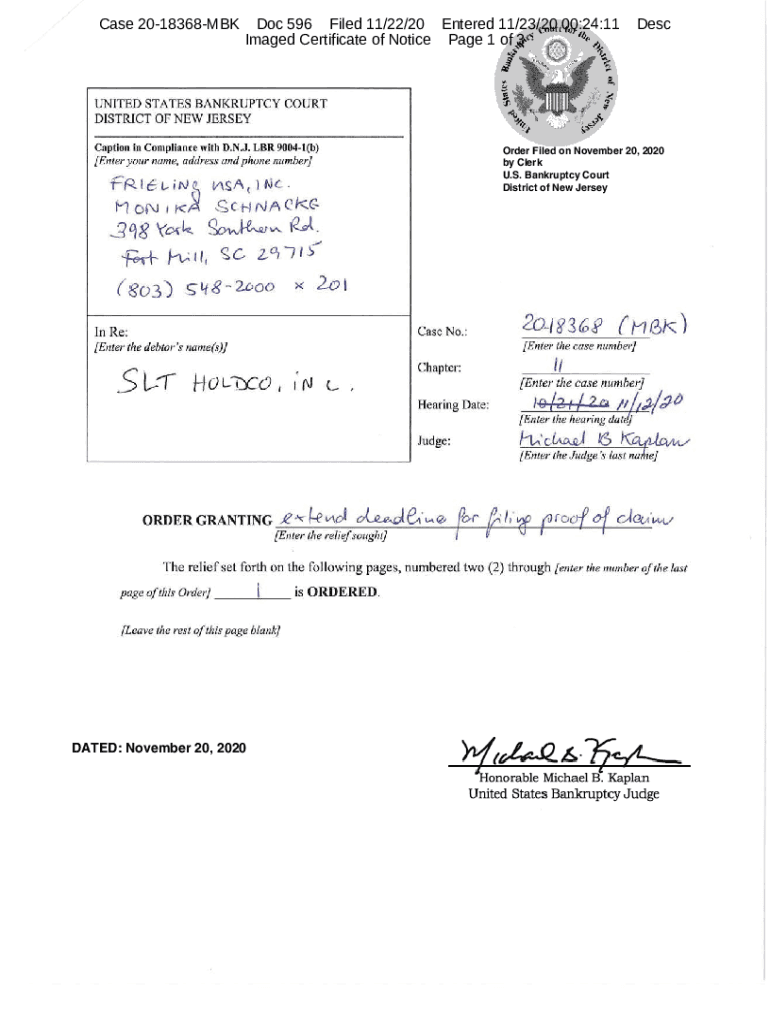 Case 20-18368-MBK Doc 596 Filed 11/22/20 Entered 11/23/20 00:24:11 Desc
Imaged Certificate of Notice Page 1 of 3
United States Bankruptcy Court for the District of New Jersey
UNITED STATES BANKRUPTCY COURT
DISTRICT OF NEW JERSEY
Caption in Compliance with D.N.J. LBR 9004-1(b)
[Enter your name, address and phone number]
FRIELING USA, INC.
MONIKA SCHNACKE
398 York Southern Rd.
Fort Mill, SC 29715
(803) 548-2000 x 201
Order Filed on November 20, 2020
by Clerk
U.S. Bankruptcy Court
District of New Jersey
In Re:
[Enter the debtor's name(s)]
SLT HOLDCO, INC.
Case No.: 20-18368 (MBK)
[Enter the case number]
Chapter: 11
[Enter the case number]
Hearing Date: 10/21/20 11/12/20
[Enter the hearing date]
Judge: Michael B Kaplan
[Enter the Judge's last name]
ORDER GRANTING extend deadline for filing proof of claim
[Enter the relief sought]
The relief set forth on the following pages, numbered two (2) through [enter the number of the last
page of this Order] 1 is ORDERED.
[Leave the rest of this page blank]
DATED: November 20, 2020
Michael B. Kaplan
Honorable Michael B. Kaplan
United States Bankruptcy Judge